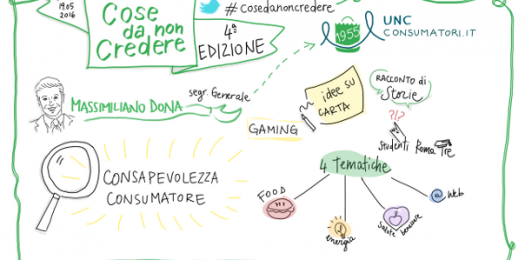 19.05
2016
Cose
da non
Credere
#cosedanoncredere
4ª
EDIZIONE
1955
UNC
CONSUMATORI.IT
MASSIMILIANO DONA
segr. Generale
GAMING
idee su
CARTA
RACCONTO di
Storie
?!?
studenti Roma Tre
CONSAPEVOLEZZA
CONSUMATORE
4 Tematiche
FOOD
energia
salute benessere
@ web